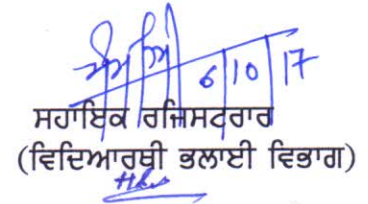 6/10/17
ਸਹਾਇਕ ਰਜਿਸਟਰਾਰ
(ਵਿਦਿਆਰਥੀ ਭਲਾਈ ਵਿਭਾਗ)